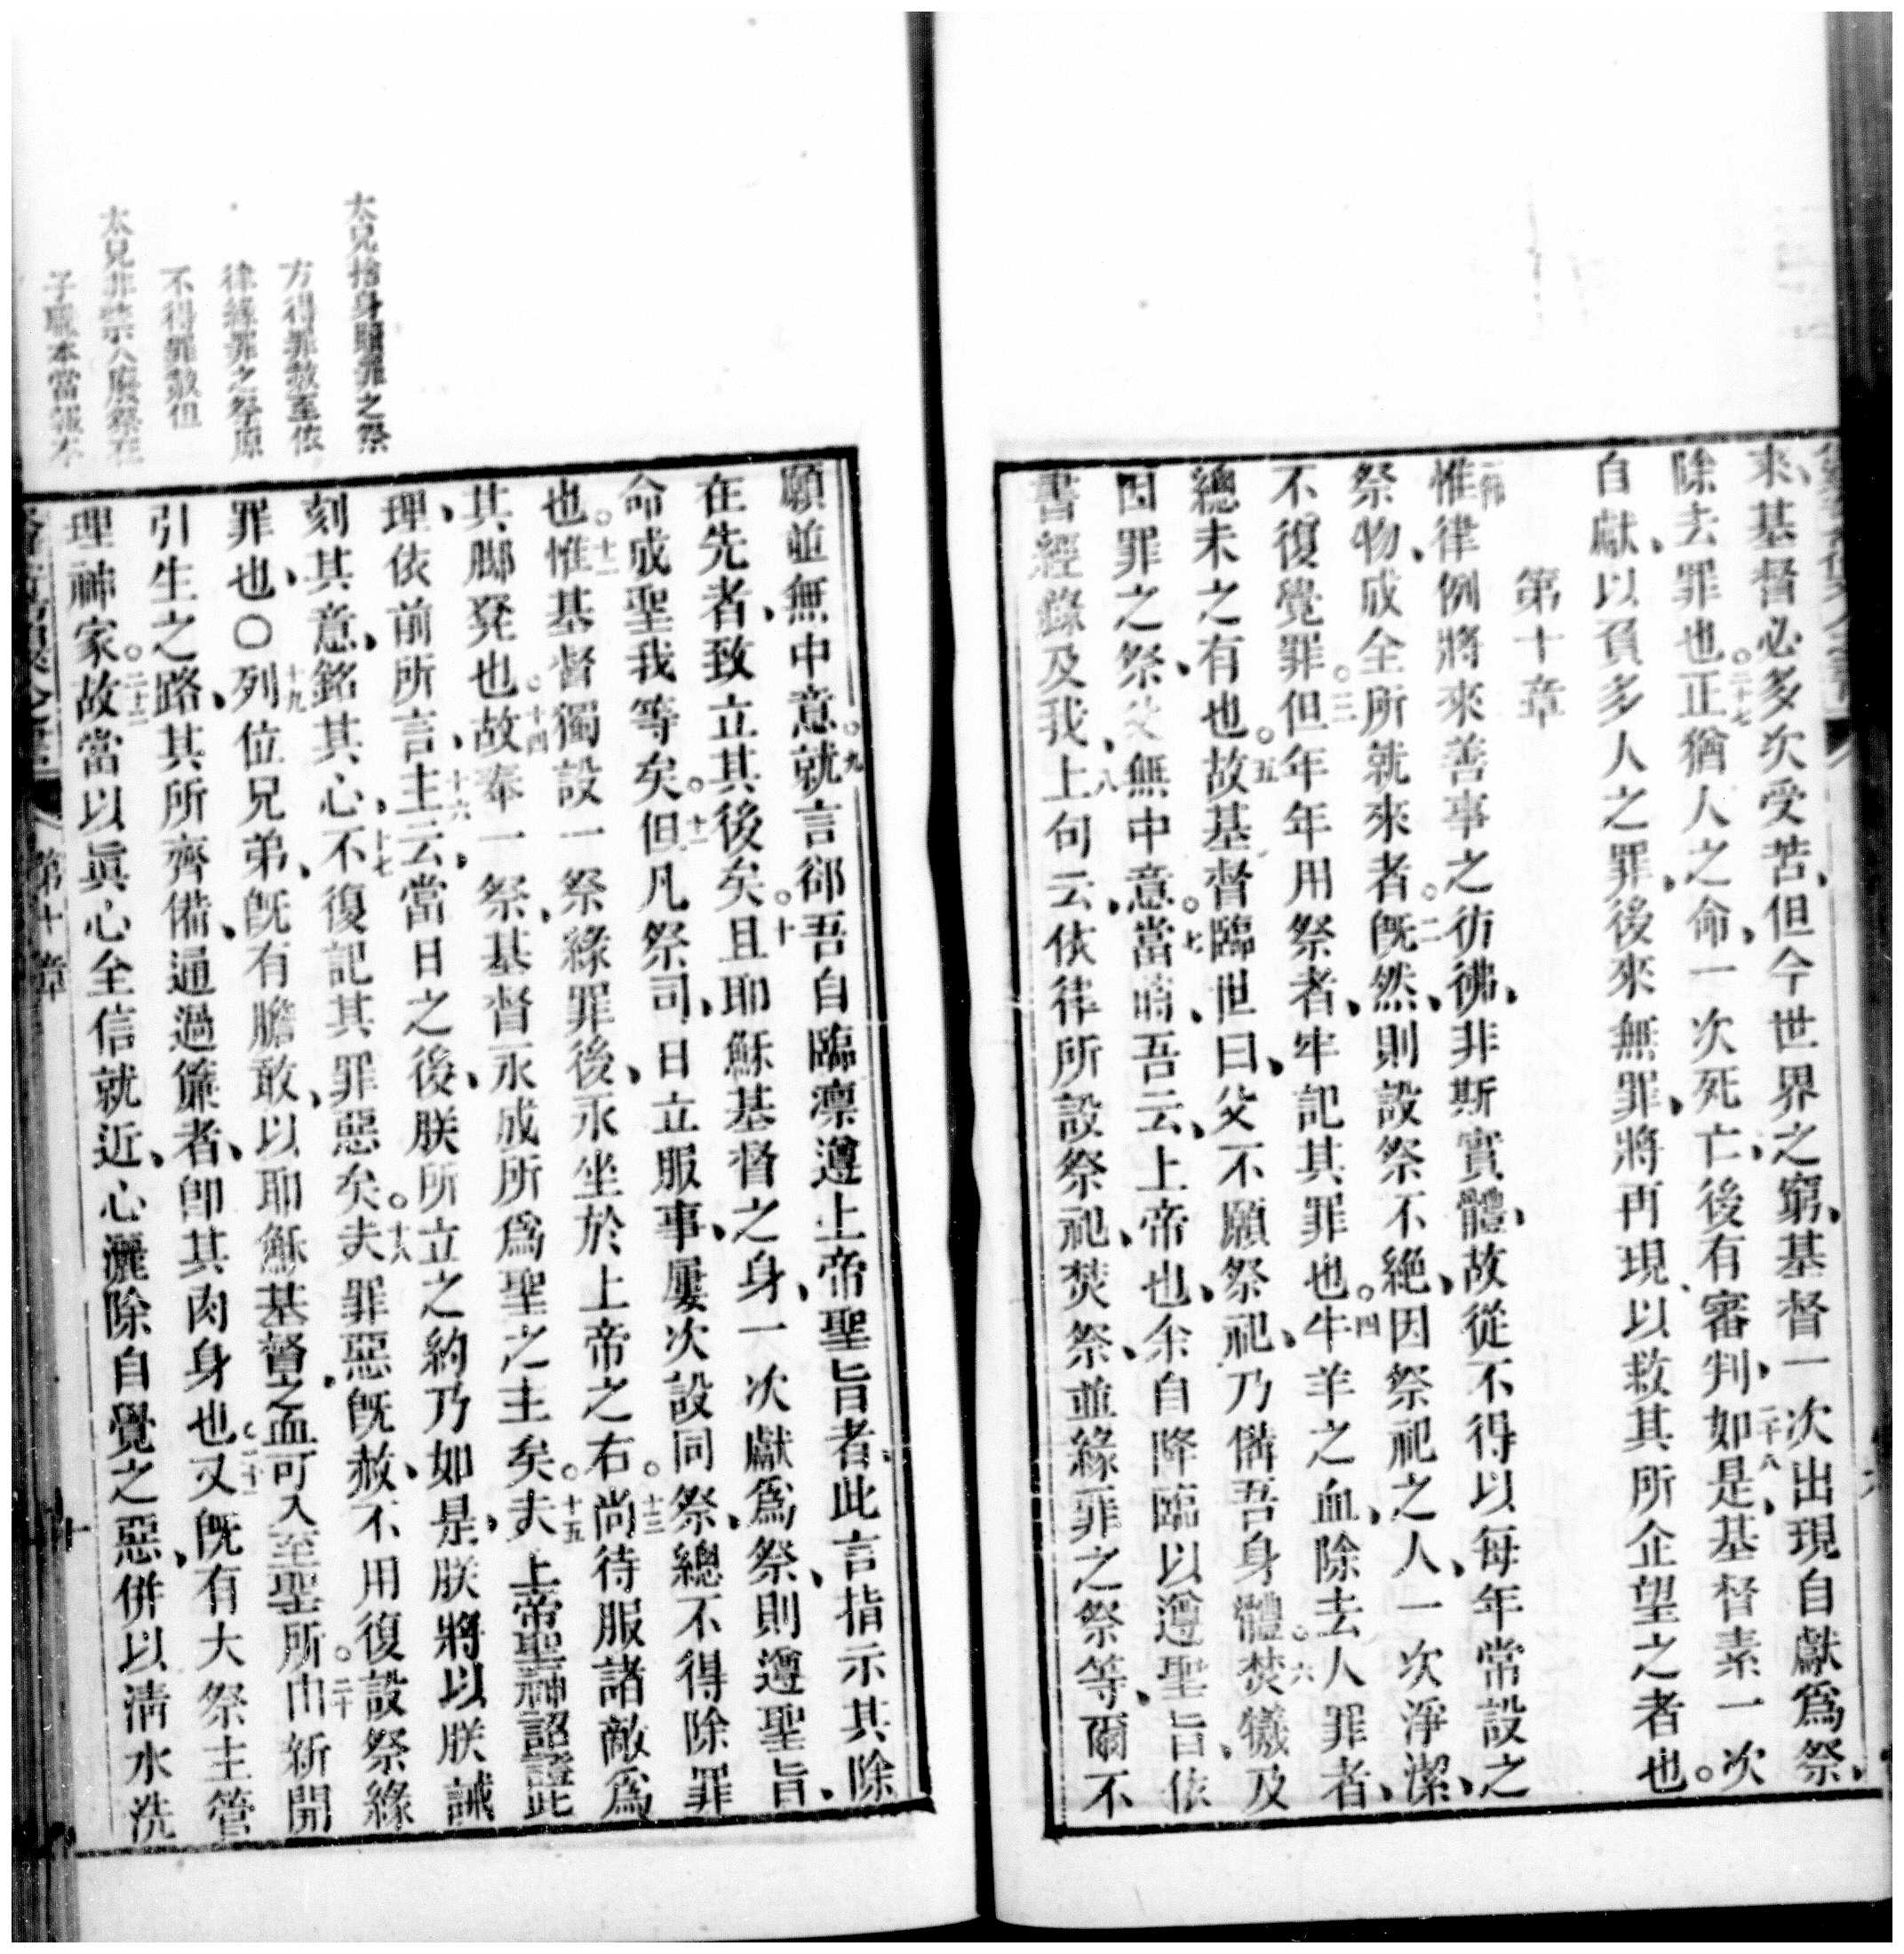 來、基督必多次受苦、但今世界之窮、基督一次出現自獻爲祭、
除去罪也。二十七正猶人之命、一次死亡、後有審判、二十八如是、基督素一次
自獻、以負多人之罪、後來無罪、將再現、以救其所企望之者也。
第十章
惟律例將來善事之彷彿、非斯實體、故從不得以每年常設之
祭物、成全所就來者。二旣然、則設祭不絕、因祭祀之人、一次淨潔、
不復覺罪。三但年年用祭者、牢記其罪也。四牛羊之血、除去人罪者、
總未之有也。五故基督臨世曰、父不願祭祀、乃備吾身體。六焚犧及
因罪之祭、父無中意。七當時、吾云、上帝也、余自降臨以遵聖旨、依
書經錄及我、八上句云、依律所設祭祀、焚祭、並緣罪之祭等、爾不
願並無中意。九就言郤吾自臨凛遵上帝聖旨者、此言指示其除
在先者、致立其後矣。十且耶穌基督之身、一次獻爲祭、則遵聖旨、
命成聖我等矣。十一但凡祭司、日立服事、屢次設同祭、總不得除罪
也。十二惟基督獨設一祭緣罪後、永坐於上帝之右。十三尚待服諸敵爲
其脚凳也。十四故奉一祭、基督永成所爲聖之主矣。十五夫上帝聖神詔證此
理、依前所言、十六主云、當日之後、朕所立之約乃如是、朕將以朕誡
刻其意、銘其心、十七不復記其罪惡矣。十八夫罪惡旣赦、不用復設祭緣
罪也、〇十九列位兄弟、旣有膽敢、以耶穌基督之血可入至聖所。二十由新開
引生之路、其所齊備、通過簾者、卽其肉身也。二十一又旣有大祭主管
理神家。二十二故當以眞心全信就近、心灑除自覺之惡、併以清水洗
第十章
十
太兄捨身贖罪之祭
方得罪赦至依
律緣罪之祭原
不得罪赦但
太兄非禁人廢祭在
子職本當報本